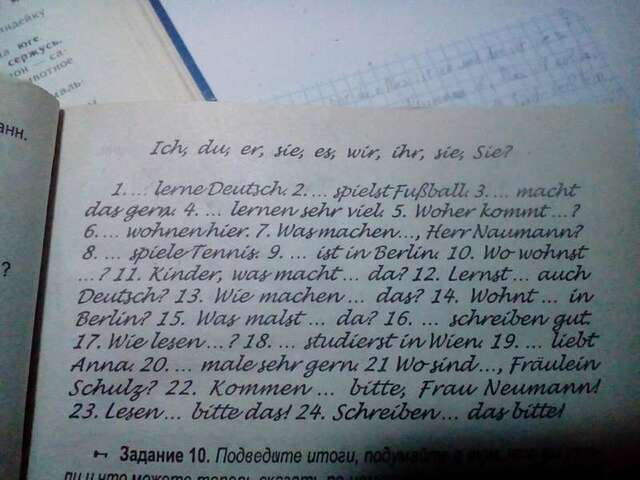 ндейку
юге
сержусь.
тон — са-
ивотное
аль-
анн.
?
Ich, du, er, sie, es, wir, ihr, sie, Sie?
1. ... lerne Deutsch. 2. ... spielst Fußball. 3. ... macht
das gern. 4. ... lernen sehr viel. 5. Woher kommt ...?
6. ... wohnen hier. 7. Was machen ..., Herr Naumann?
8. ... spiele Tennis. 9. ... ist in Berlin. 10. Wo wohnst
...? 11. Kinder, was macht ... da? 12. Lernst ... auch
Deutsch? 13. Wie machen ... das? 14. Wohnt ... in
Berlin? 15. Was malst ... da? 16. ... schreiben gut.
17. Wie lesen ...? 18. ... studierst in Wien. 19. ... liebt
Anna. 20. ... male sehr gern. 21 Wo sind ..., Fräulein
Schulz? 22. Kommen ... bitte, Frau Neumann!
23. Lesen ... bitte das! 24. Schreiben ... das bitte!
Задание 10. Подведите итоги, подумайте
ли и что можете теперь сказать по